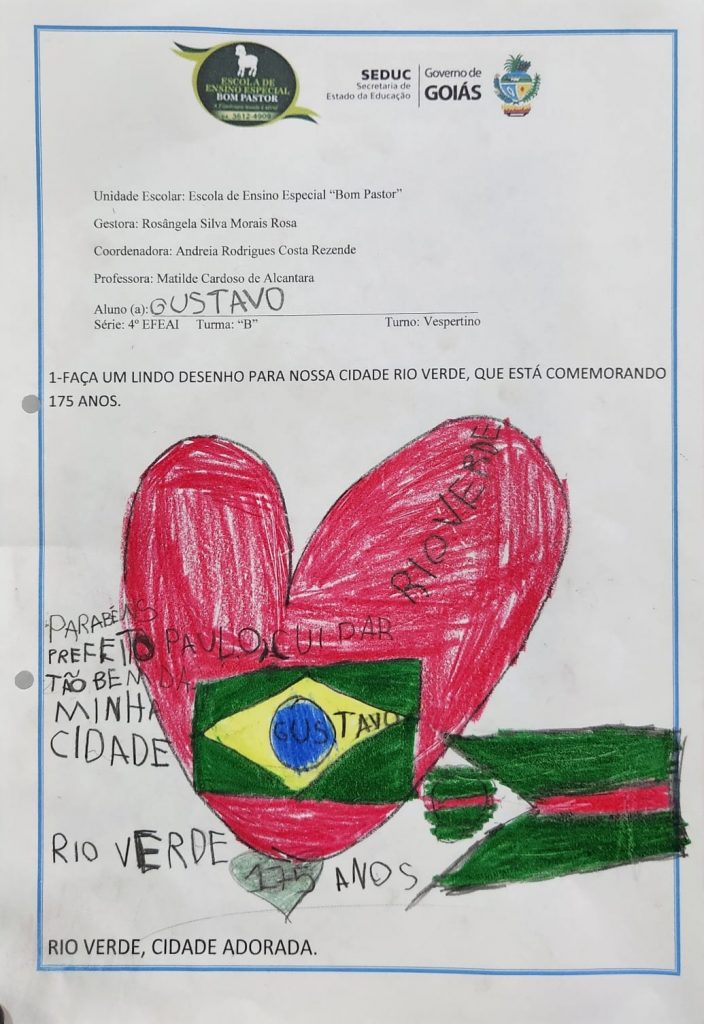 ESCOLA DE
ENSINO ESPECIAL
BOM PASTOR
3612-4909
SEDUC
Secretaria de
Estado da Educação
Governo de
GOIÁS
Unidade Escolar: Escola de Ensino Especial “Bom Pastor”
Gestora: Rosângela Silva Morais Rosa
Coordenadora: Andreia Rodrigues Costa Rezende
Professora: Matilde Cardoso de Alcantara
Aluno (a): GUSTAVO
Série: 4º EFEAI Turma: “B” Turno: Vespertino
1-FAÇA UM LINDO DESENHO PARA NOSSA CIDADE RIO VERDE, QUE ESTÁ COMEMORANDO
175 ANOS.
RIO VERDE
PARABÉNS
PREFEITO PAULO, CUIDAR
TÃO BEM DA
MINHA
CIDADE
GUSTAVO
RIO VERDE
175 ANOS
RIO VERDE, CIDADE ADORADA.